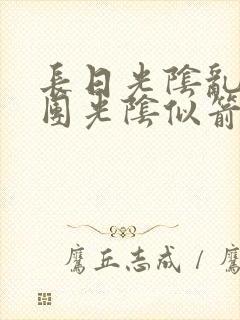 長日光陰亂
團光陰似箭
鷹丘志成 / 鷹